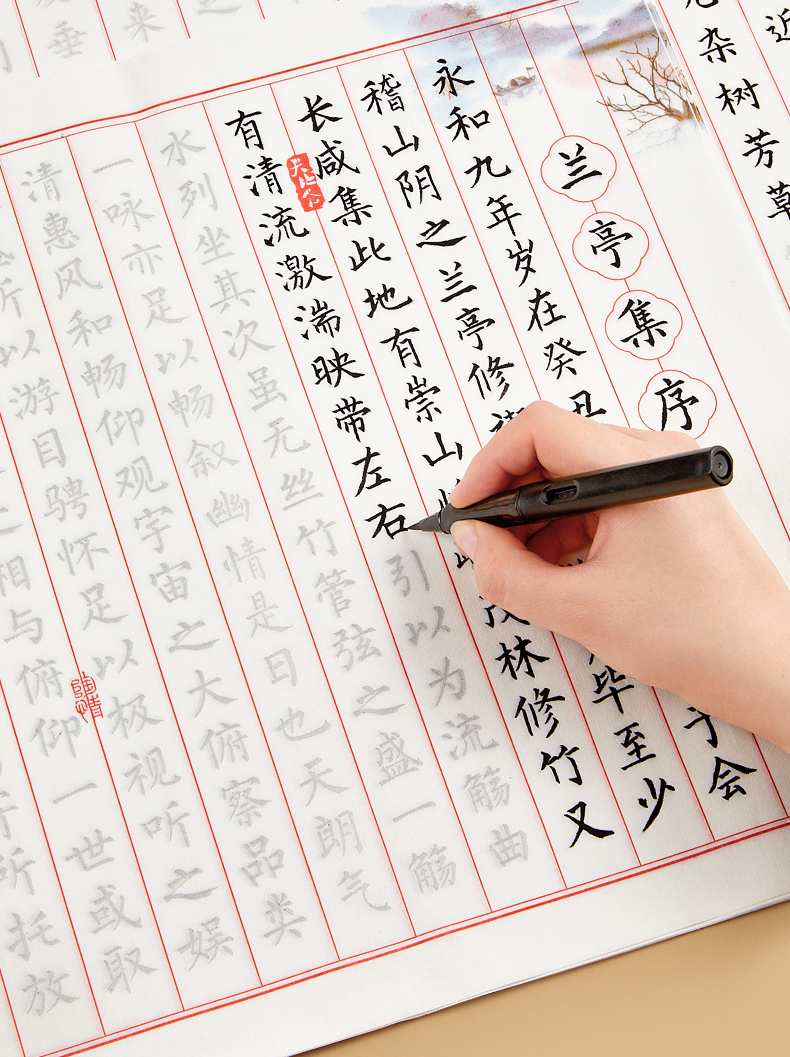 近
杂树芳草
兰亭集序
永和九年岁在癸丑会
稽山阴之兰亭修毕至少
长咸集此地有崇山茂林修竹又
有清流激湍映带左右引以为流觞曲
水列坐其次虽无丝竹管弦之盛一觞
一咏亦足以畅叙幽情是日也天朗气
清惠风和畅仰观宇宙之大俯察品类
所以游目骋怀足以极视听之娱
相与俯仰一世或取
所托放
之
来
垂
陶情